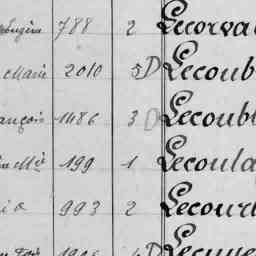 Eugène 788 2 Lecorva
Marie 2010 5 D Lecoub
ançois 1486 3 D Lecoubl
Mie 199 1 Lecoula
a 993 2 Lecourt
D